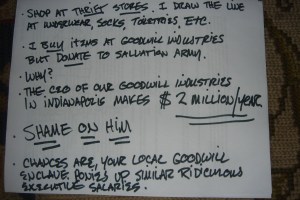 • SHOP AT THRIFT STORES. I DRAW THE LINE
AT UNDERWEAR, SOCKS, TOILETRIES, ETC.
• I BUY ITEMS AT GOODWILL INDUSTRIES
BUT DONATE TO SALVATION ARMY.
• WHY?
• THE CEO OF OUR GOODWILL INDUSTRIES
IN INDIANAPOLIS MAKES $2 MILLION/YEAR.
• SHAME ON HIM
• CHANCES ARE, YOUR LOCAL GOODWILL
ENCLAVE PONIES UP SIMILAR RIDICULOUS
EXECUTIVE SALARIES.